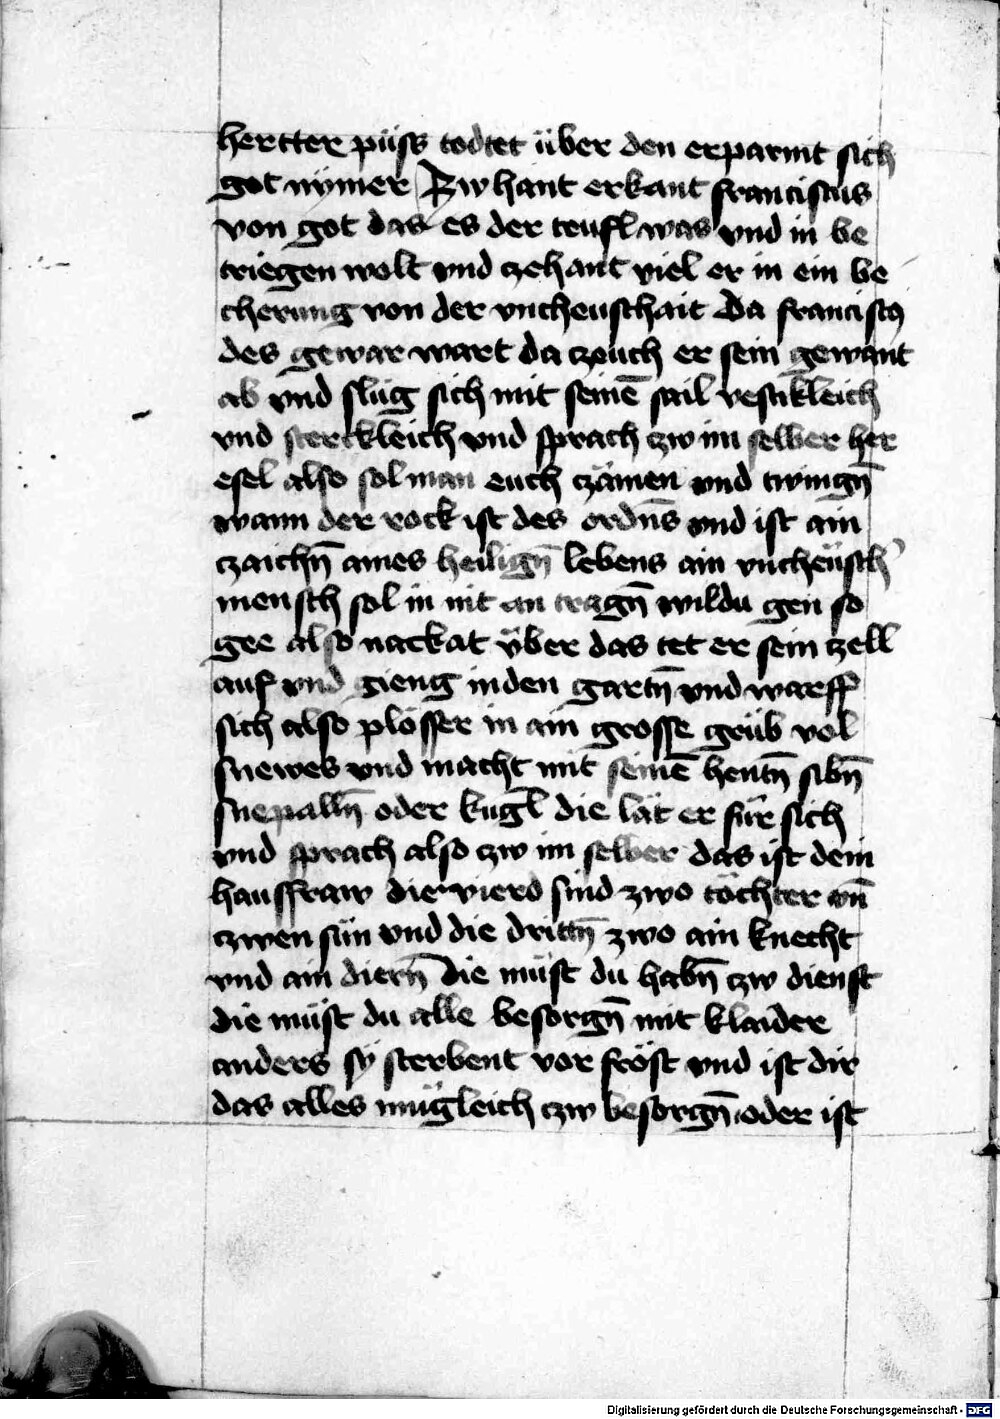 hertter püss todtet über den erparmt sich
got nymer Zw hant erkant franciscus
von got das es der teufl was vnd in be
triegen wolt vnd czehant viel er in ein be
cherung von der vncheuschait Da franciscꝯ
des gewar wart da czouch er sein gewant
ab vnd slüg sich mit seinē sail vestikleich
vnd sterckleich vnd sprach zw im selber her
esel also sol man euch czämen vnd twingn̄
wann der rock ist des ordn̄s vnd ist ain
czaichn̄ aines heilign̄ lebens ain vncheüsch
mensch sol in nit an tragn̄ wildu gen so
gee also nackat über das tet er sein zell
auf vnd gieng in den gartn̄ vnd warff
sich also plösser in ain grosse grüb vol
snewes vnd macht mit seinē hentn̄ sibn̄
snepalln̄ oder kugl̄ die lät er für sich
vnd sprach also zw im selber das ist dein
hausfraw die vierd sind zwo töchter vn̄
czwen sün vnd die drittn̄ zwo ain knecht
vnd ain diern̄ die müst du habn̄ zw dienst
die müst du alle besorgn̄ mit klaider
anders sÿ sterbent vor fröst vnd ist dir
das alles mügleich czw besorgn̄ oder ist
Digitalisierung gefördert durch die Deutsche Forschungsgemeinschaft - DFG